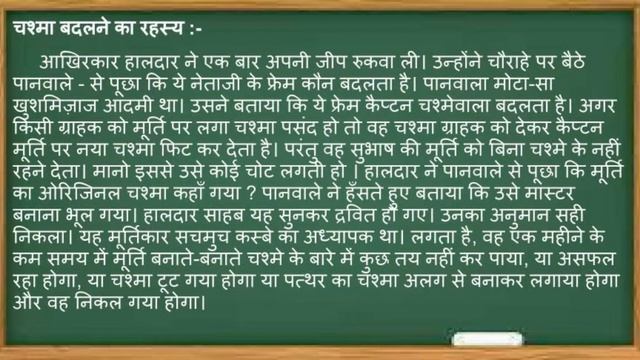 चश्मा बदलने का रहस्य :-
आखिरकार हालदार ने एक बार अपनी जीप रुकवा ली। उन्होंने चौराहे पर बैठे
पानवाले - से पूछा कि ये नेताजी के फ्रेम कौन बदलता है। पानवाला मोटा-सा
खुशमिज़ाज आदमी था। उसने बताया कि ये फ्रेम कैप्टन चश्मेवाला बदलता है। अगर
किसी ग्राहक को मूर्ति पर लगा चश्मा पसंद हो तो वह चश्मा ग्राहक को देकर कैप्टन
मूर्ति पर नया चश्मा फिट कर देता है। परंतु वह सुभाष की मूर्ति को बिना चश्मे के नहीं
रहने देता। मानो इससे उसे कोई चोट लगती हो । हालदार ने पानवाले से पूछा कि मूर्ति
का ओरिजिनल चश्मा कहाँ गया ? पानवाले ने हँसते हुए बताया कि उसे मास्टर
बनाना भूल गया। हालदार साहब यह सुनकर द्रवित हो गए। उनका अनुमान सही
निकला। यह मूर्तिकार सचमुच कस्बे का अध्यापक था। लगता है, वह एक महीने के
कम समय में मूर्ति बनाते-बनाते चश्मे के बारे में कुछ तय नहीं कर पाया, या असफल
रहा होगा, या चश्मा टूट गया होगा या पत्थर का चश्मा अलग से बनाकर लगाया होगा
और वह निकल गया होगा।